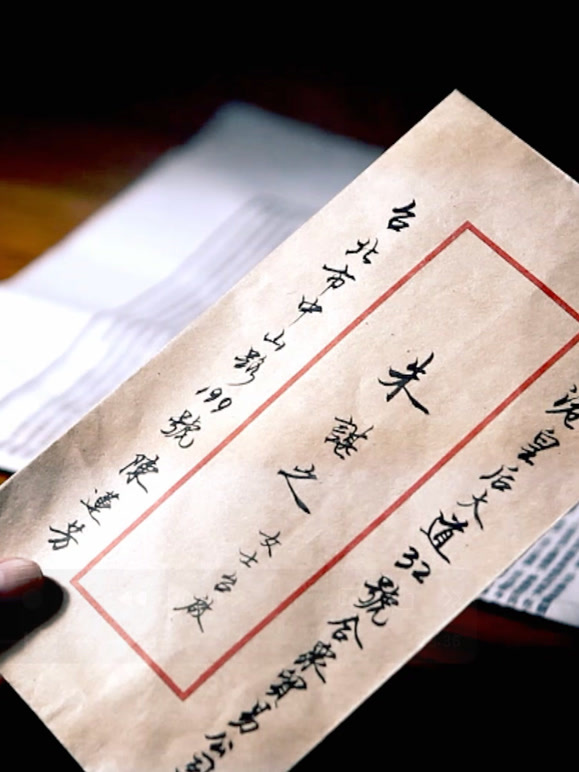 港皇后大道32號合眾貿易公司
朱諶之女士台啟
台北市中山路199號陳蓮芳